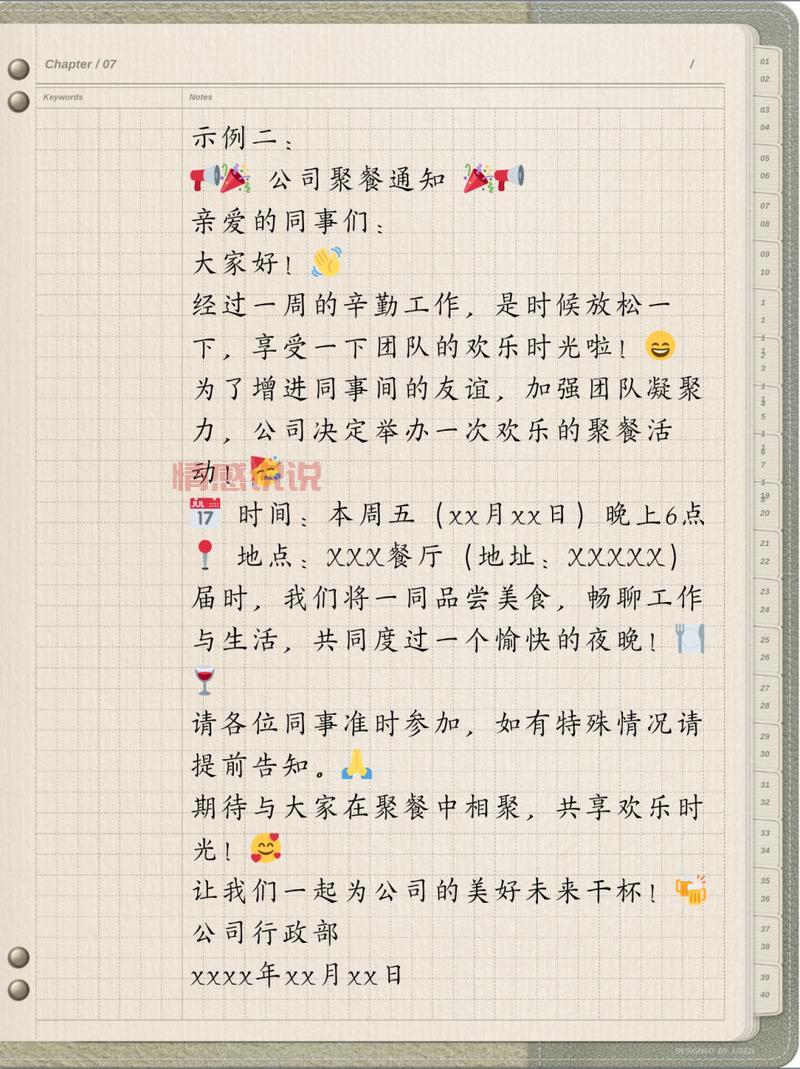 Chapter / 07 /
Keywords Notes
示例二：
📢🎉 公司聚餐通知 🎉📢
亲爱的同事们：
大家好！👋
经过一周的辛勤工作，是时候放松一
下，享受一下团队的欢乐时光啦！😄
为了增进同事间的友谊，加强团队凝聚
力，公司决定举办一次欢乐的聚餐活
动！🥳
情感说说
📅 时间：本周五（xx月xx日）晚上6点
📍 地点：XXX餐厅（地址：XXXXX）
届时，我们将一同品尝美食，畅聊工作
与生活，共同度过一个愉快的夜晚！🍽️
🍷
请各位同事准时参加，如有特殊情况请
提前告知。🙏
期待与大家在聚餐中相聚，共享欢乐时
光！🥰
让我们一起为公司的美好未来干杯！🍻
公司行政部
xxxx年xx月xx日
01
02
03
04
05
06
07
08
09
10
19
20
21
22
23
24
25
26
27
28
29
30
31
32
33
34
35
36
37
38
39
40